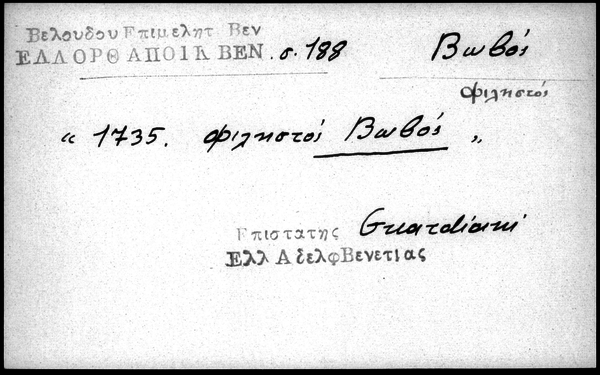 Βελουδου Επιμελητ Βεν
ΕΛΛΟΡΘ ΑΠΟΙΚ ΒΕΝ. σ. 188
Βωβός
Φιληστός
" 1735. Φιληστός Βωβός "
Επιστατης Guardiani
Ελλ Αδελφ Βενετιας